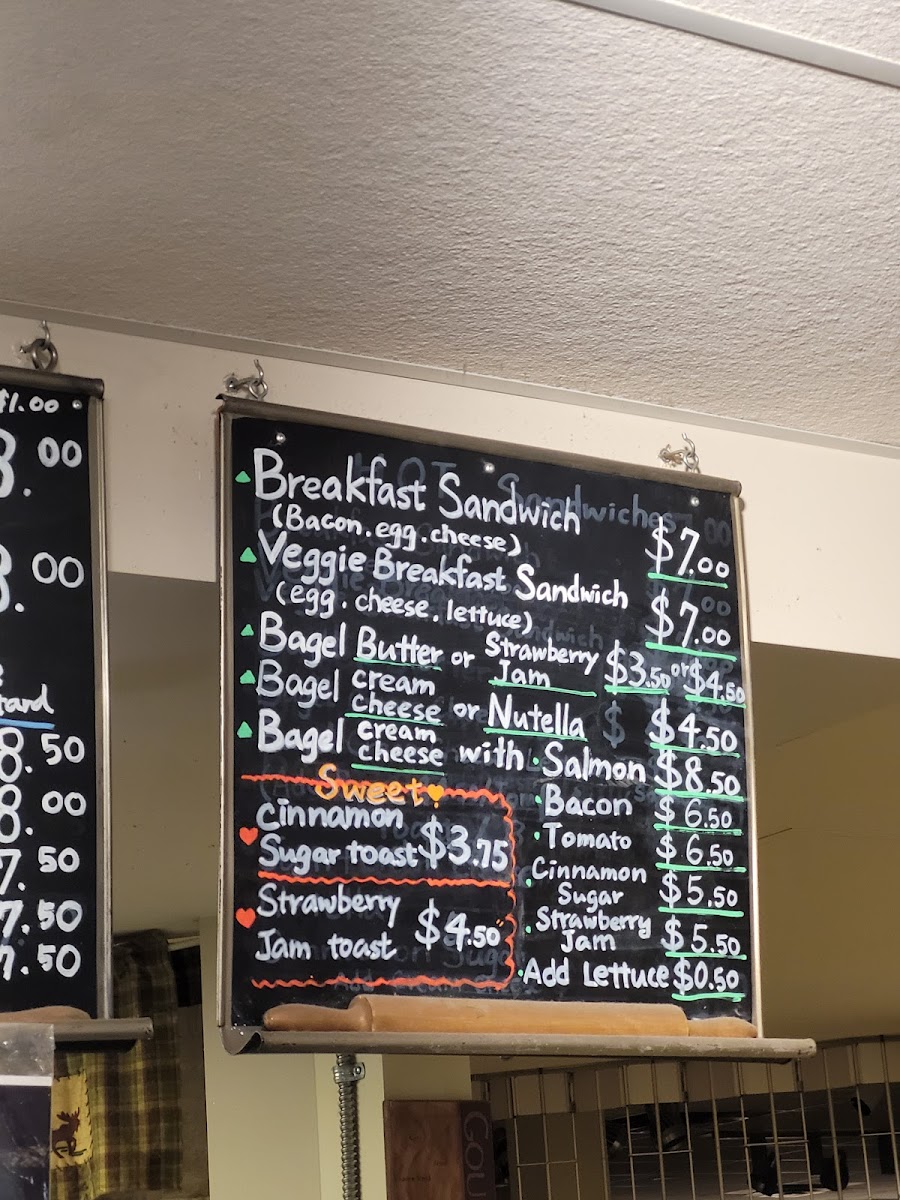 $1.00
8.00
8.00
tard
8.50
8.00
7.50
7.50
7.50
Breakfast Sandwich
(Bacon.egg.cheese) $7.00
Veggie Breakfast Sandwich
(egg.cheese.lettuce) $7.00
Bagel Butter or Strawberry Jam $3.50 or $4.50
Bagel cream cheese or Nutella $4.50
Bagel cream cheese with · Salmon $8.50
· Bacon $6.50
· Tomato $6.50
· Cinnamon Sugar $5.50
· Strawberry Jam $5.50
· Add Lettuce $0.50
Sweet
Cinnamon
Sugar toast $3.75
Strawberry
Jam toast $4.50
GOU